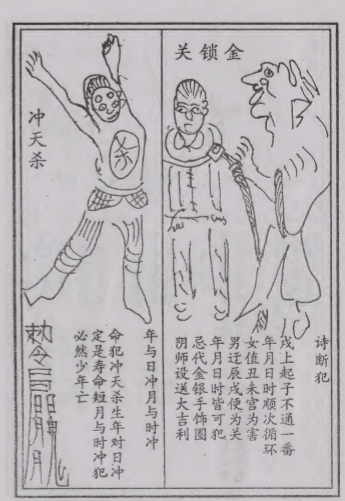 金锁关
诗断犯
戌上起子不通一番
年月日时顺次循环
女值丑未宫为害
男迁辰戌便为关
年月日时皆可犯
忌代金银手饰圈
阴师设送大吉利
冲天杀
杀
年与日冲月与时冲
命犯冲天杀生年对日冲
定是寿命短月与时冲犯
必然少年亡
敕令